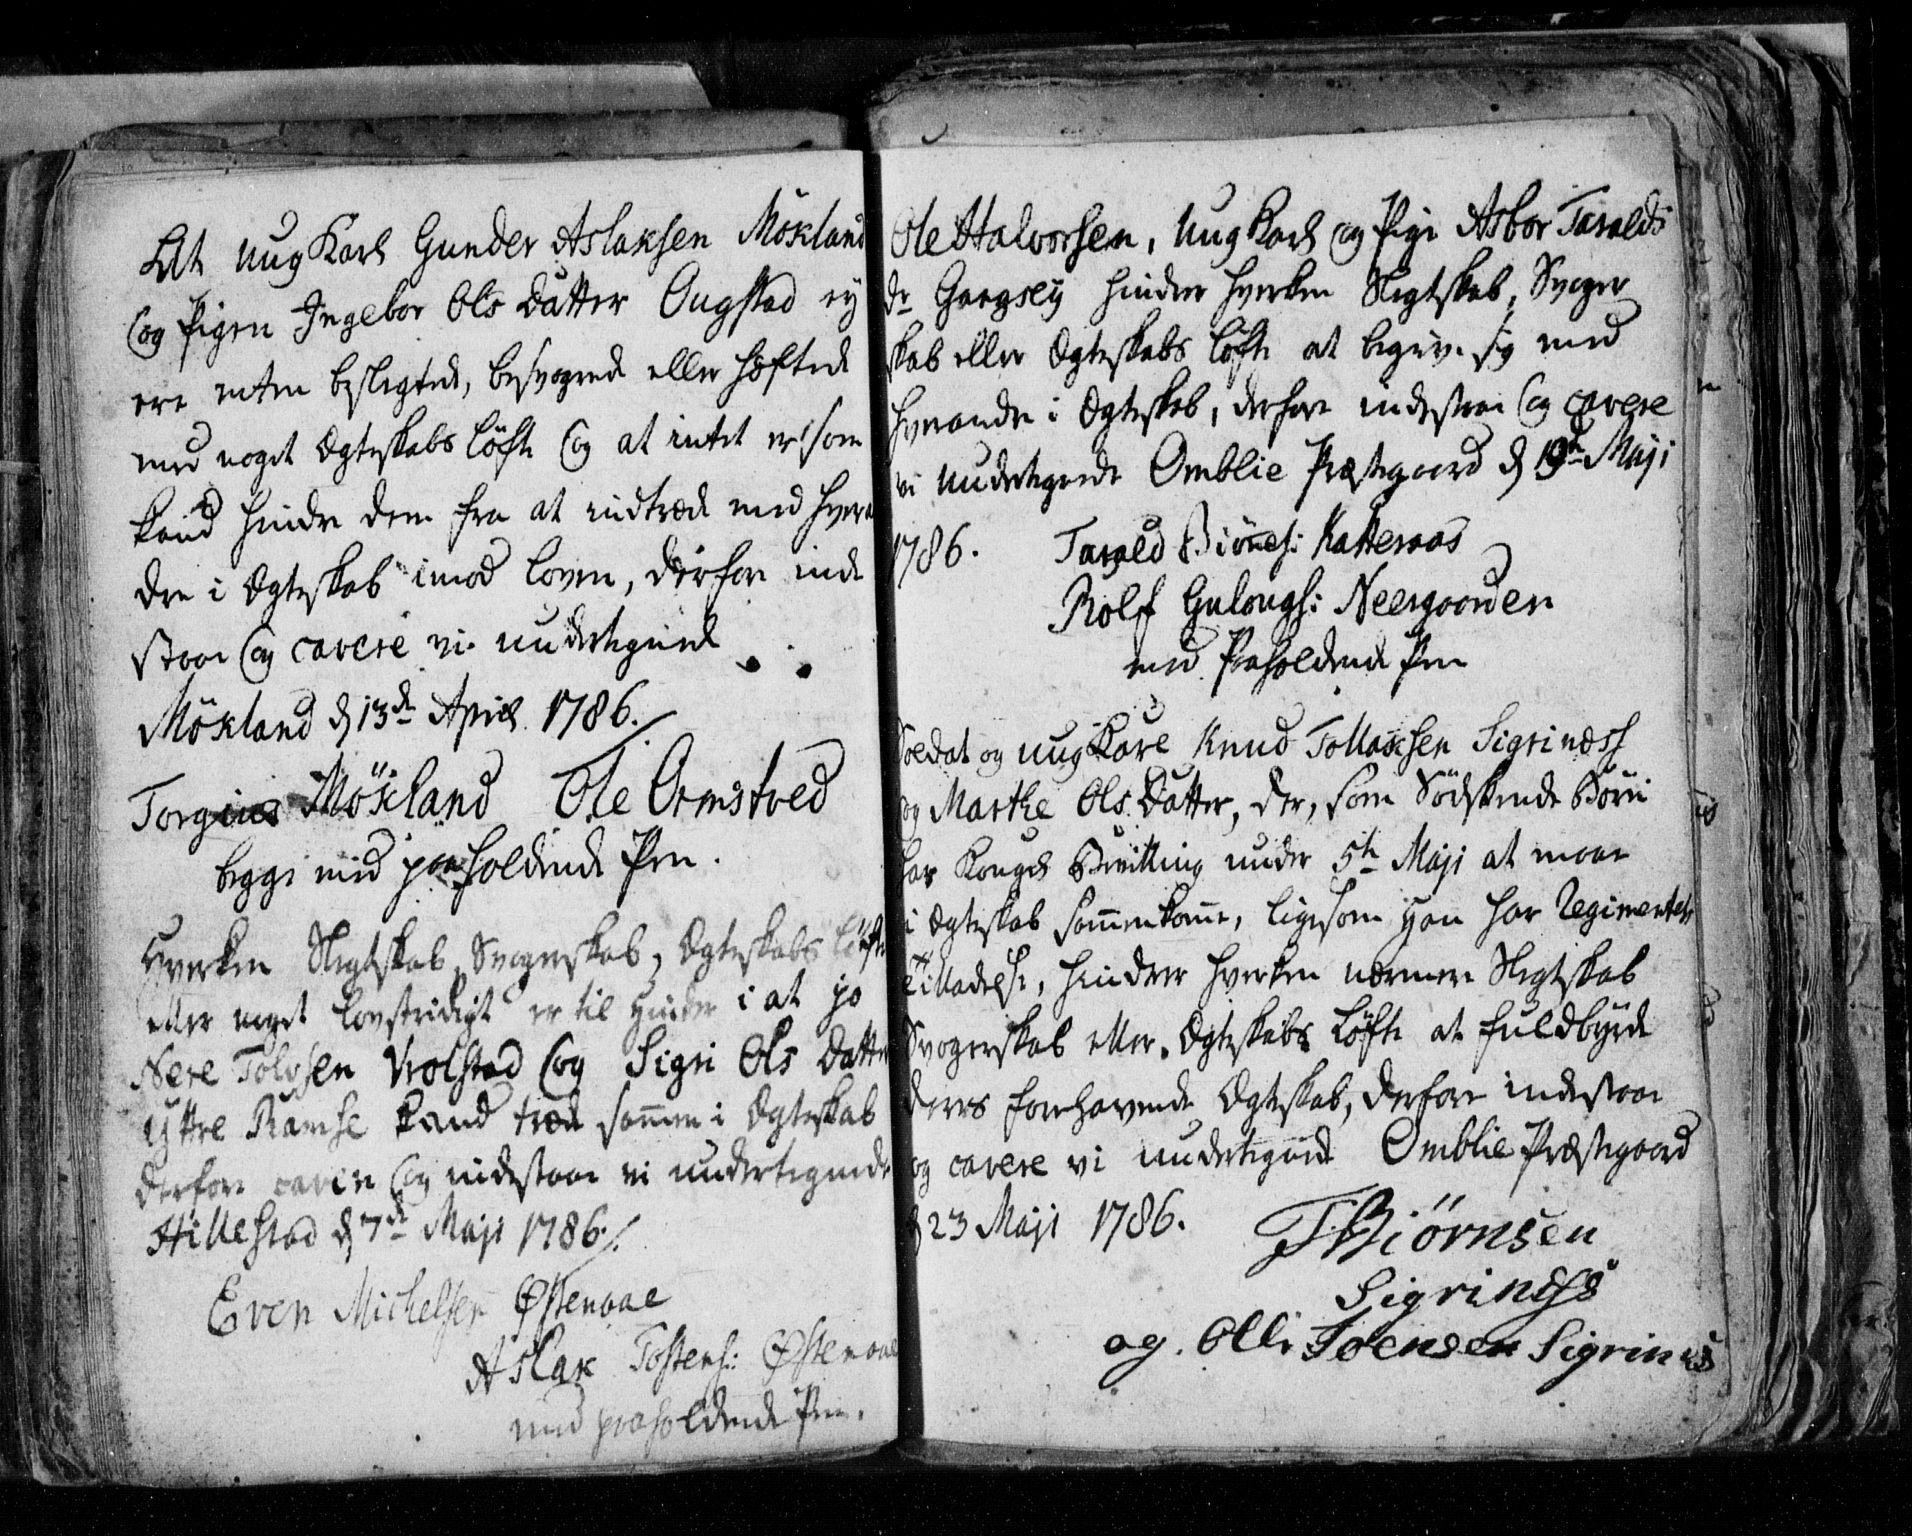 At ung Karl Gunder Aslaksen Mökland
og Pigen Ingebor Ols Datter Ougstad ey
ere enten beslegtede, besvogrede eller hæftede
med noget Ægteskabs Löfte og at intet er som
kand hindre dem fra at indtræde med hveran
dre i Ægteskab imod Loven, derfore inde
staae og cavere vi undertegnede
Mökland d 13de April 1786.
Mökland Ole Ormstved
begge med paaholdende Pen.
Hverken Slegtskab, Svogerskab, Ægteskabs Löfte
eller noget lovstridigt er til Hinder i at jo
Nere Tolvsen Wolstad og Sigri Ols Datter
Yttre Ramse kand træde sammen i Ægteskab
derfore cavere og indestaae vi undertegnede
Hillestad d 7de Maji 1786.
Even Michelsen Østenaae
Aslak Tostens: Østenaae
med paaholdende Pen.
Ole Halvorsen, ung Karl og Pige Asbor Taralds
dr Gangsey hindrer hverken Slegtskab, Svoger
skab eller Ægteskabs Löfte at begive sig med
hverandre i Ægteskab, derfore indestaae og cavere
vi undertegnede Omblie Præstegaard d 19de Maji
1786. Tarald Biörnes: Katteraas
Rolf Gulougs: Neergaarden
med Paaholdende Pen
Soldat og ung Karl Knud Tollaksen Sigrinæss
og Marthe Ols Datter, der, som Södskende Börn
har Konges Bevilling under 5te Maji at maae
i Ægteskab sammenkomme, ligesom Han har Regimentets
Tilladelse, hindrer hverken nærmere Slegtskab
Svogerskab eller Ægteskabs Löfte at fuldbyrde
deres forehavende Ægteskab, derfore indestaae
og cavere vi undertegnede Omblie Præstegaard
d 23 Maji 1786. TBiörnsen
Sigrinæss
og. Olle Joensen Sigrines